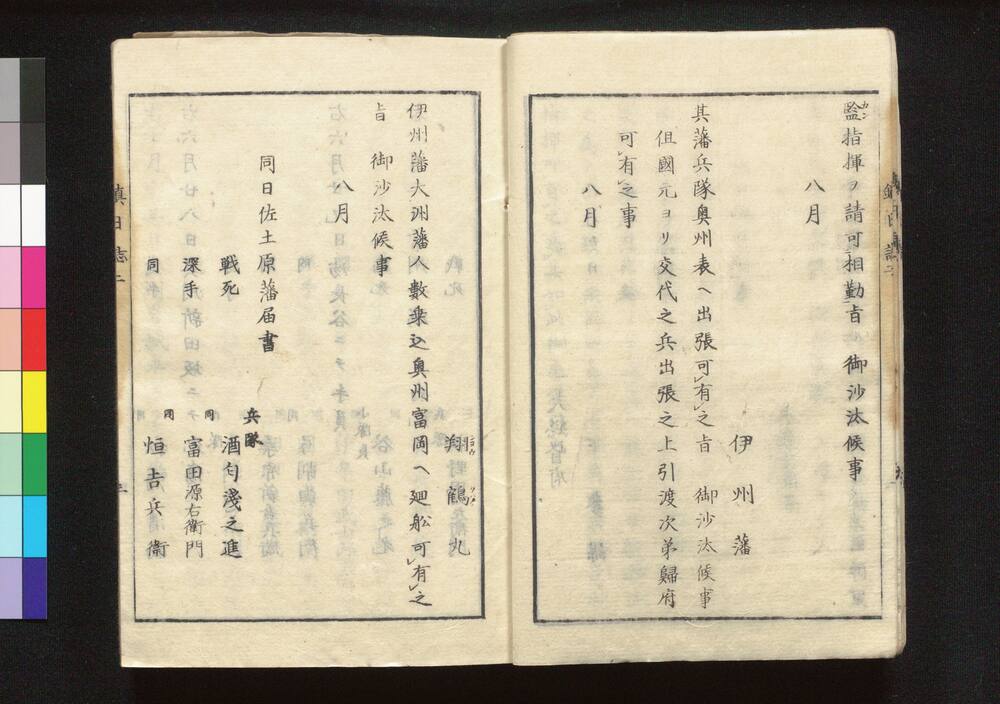 監指揮ヲ請可相勤旨 御沙汰候事
八月
伊州藩
其藩兵隊奥州表ヘ出張可有之旨 御沙汰候事
但國元ヨリ交代之兵出張之上引渡次弟歸府
可有之事
八月
翔鶴丸
伊州藩大洲藩人數乗込奥州富岡ヘ廻舩可有之
旨 御沙汰候事
八月
同日佐土原藩届書
兵隊
戦死 酒匂淺之進
深手 同 富田源右衛門
同 同 恒吉兵衛
鎮日志二